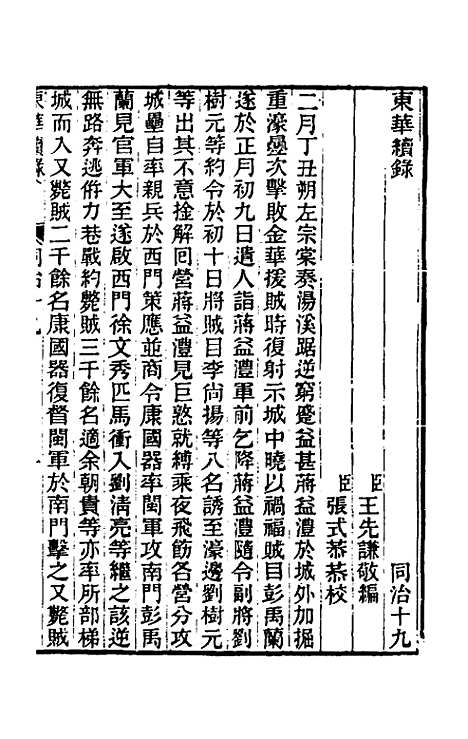 東華續錄　同治十九
臣王先謙敬編
臣張式恭恭校
二月丁丑朔左宗棠奏湯溪踞逆窮蹙益甚蔣益澧於城外加掘
重濠疊次擊敗金華援賊時復射示城中曉以禍福賊目彭禹蘭
遂於正月初九日遣人詣蔣益澧軍前乞降蔣益澧隨令副將劉
樹元等約令於初十日將賊目李尚揚等八名誘至濠邊劉樹元
等出其不意拴解回營蔣益澧見巨憝就縛乘夜飛飭各營分攻
城壘自率親兵於西門策應並商令康國器率閩軍攻南門彭禹
蘭見官軍大至遂啟西門徐文秀匹馬衝入劉清亮等繼之該逆
無路奔逃併力巷戰約斃賊三千餘名適余朝貴等亦率所部梯
城而入又斃賊二千餘名康國器復督閩軍於南門擊之又斃賊
東華續錄　同治十九